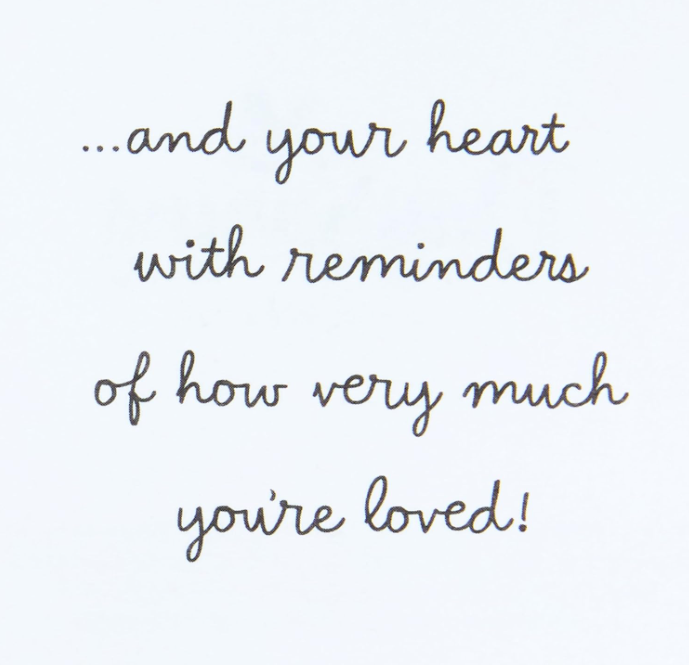 ...and your heart
with reminders
of how very much
you're loved!